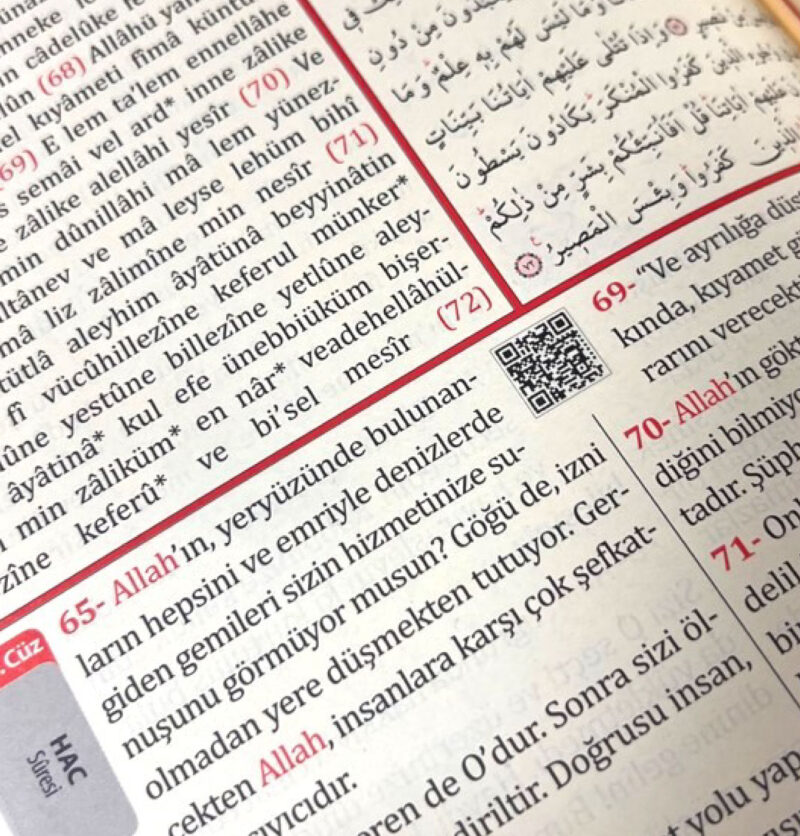 câdelûke
lûn (68) Allâhü
el kıyâmeti fîmâ küntü
69) E lem ta'lem ennellâhe
semâi vel ard* inne zâlike
zâlike alellâhi yesîr (70) Ve
min dûnillâhi mâ lem yünez-
ltânev ve mâ leyse lehüm bihî
mâ liz zâlimîne min nesîr (71)
tütlâ aleyhim âyâtünâ beyyinâtin
fî vücûhillezîne keferul münker*
ûne yestûne billezîne yetlûne aley-
âyâtinâ* kul efe ünebbiüküm bişer-
min zâliküm* en nâr* veadehellâhül-
zîne keferû* ve bi'sel mesîr (72)
مِنْ دُونِ
وَمَا لَيْسَ لَهُمْ بِهِ عِلْمٌ وَمَا
نَصِيرٍ وَاِذَا تُتْلٰى عَلَيْهِمْ اٰيَاتُنَا بَيِّنَاتٍ
الَّذِينَ كَفَرُوا الْمُنْكَرَ يَكَادُونَ يَسْطُونَ
عَلَيْهِمْ اٰيَاتِنَا قُلْ اَفَاُنَبِّئُكُمْ بِشَرٍّ مِنْ ذٰلِكُمْ
الَّذِينَ كَفَرُوا وَبِئْسَ الْمَصِيرُ ٧٢
65- Allah'ın, yeryüzünde bulunan-
ların hepsini ve emriyle denizlerde
giden gemileri sizin hizmetinize su-
nuşunu görmüyor musun? Göğü de, izni
olmadan yere düşmekten tutuyor. Ger-
çekten Allah, insanlara karşı çok şefkat-
ıyıcıdır.
ren de O'dur. Sonra sizi öl-
diriltir. Doğrusu insan,
69- "Ve ayrılığa düş
kında, kıyamet g
rarını verecekt
70- Allah'ın gökt
diğini bilmiyo
tadır. Şüph
71- Onl
delil
bi
yolu yap
. Cüz
HAC
Sûresi